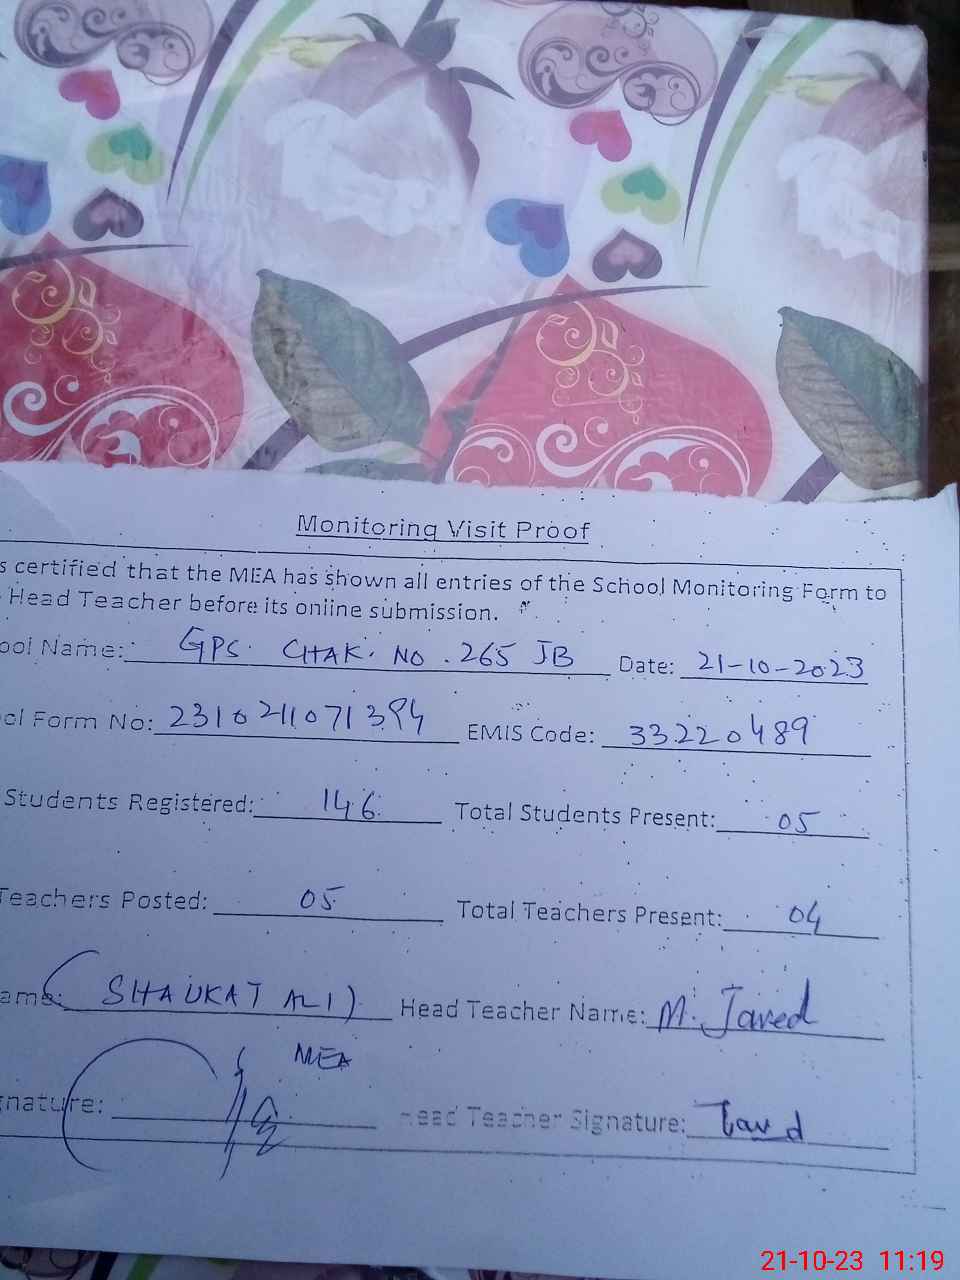 Monitoring Visit Proof
s certified that the MEA has shown all entries of the School Monitoring Form to
Head Teacher before its online submission.
ool Name: GPS. CHAK. NO. 265 JB Date: 21-10-2023
ol Form No: 2310211071394 EMIS Code: 33220489
Students Registered: 146 Total Students Present: 05
Teachers Posted: 05 Total Teachers Present: 04
ame: (SHAUKAT ALI) Head Teacher Name: M. Javed
MEA
gnature: Head Teacher Signature: Javed
21-10-23 11:19